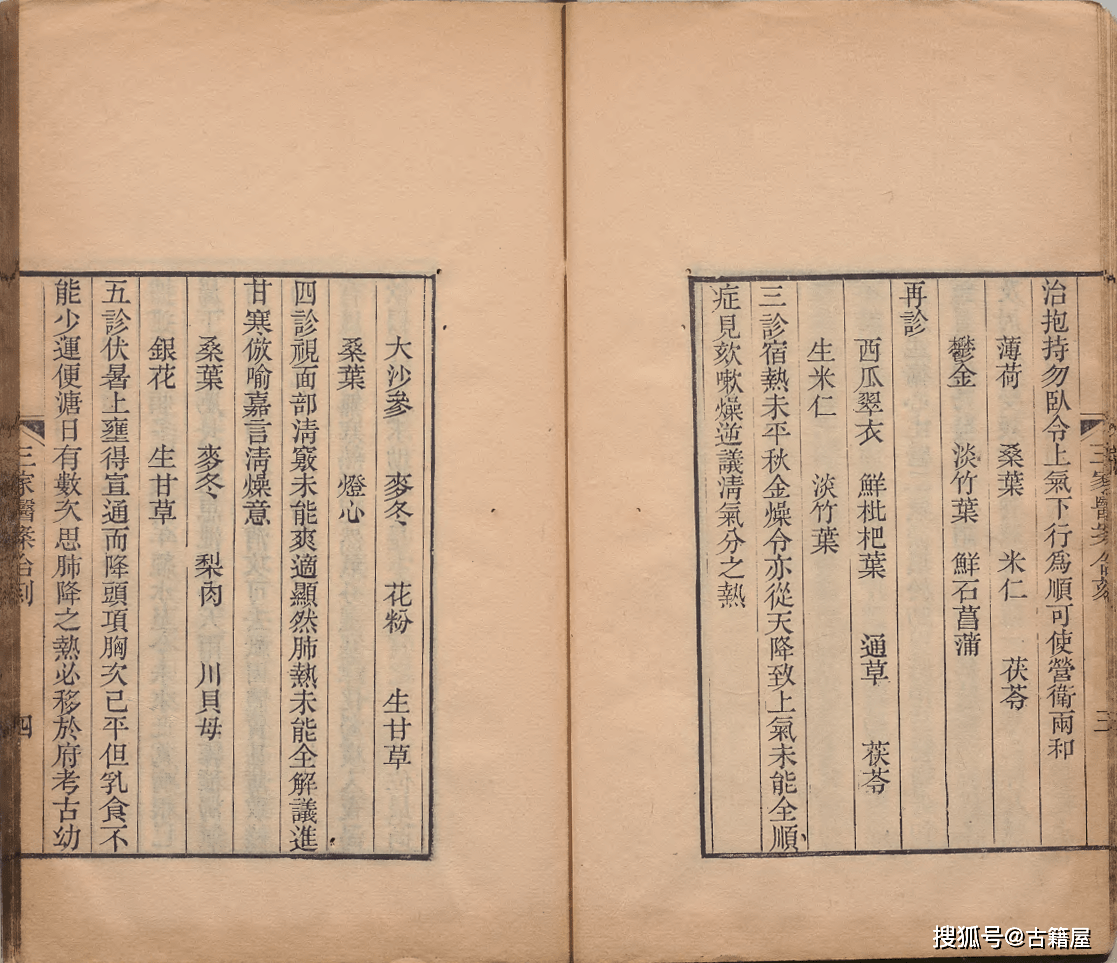 治抱持勿臥令上氣下行爲順可使營衛兩和
薄荷 桑葉 米仁 茯苓
鬱金 淡竹葉 鮮石菖蒲
再診
西瓜翠衣 鮮枇杷葉 通草 茯苓
生米仁 淡竹葉
三診宿熱未平秋金燥令亦從天降致上氣未能全順
症見欬嗽燥逆議清氣分之熱
三家醫案合刻
三
大沙參 麥冬 花粉 生甘草
桑葉 燈心
四診視面部清竅未能爽適顯然肺熱未能全解議進
甘寒倣喻嘉言清燥意
桑葉 麥冬 梨肉 川貝母
銀花 生甘草
五診伏暑上壅得宣通而降頭項胸次已平但乳食不
能少運便溏日有數次思肺降之熱必移於府考古幼
三家醫案合刻
四
搜狐号@古籍屋